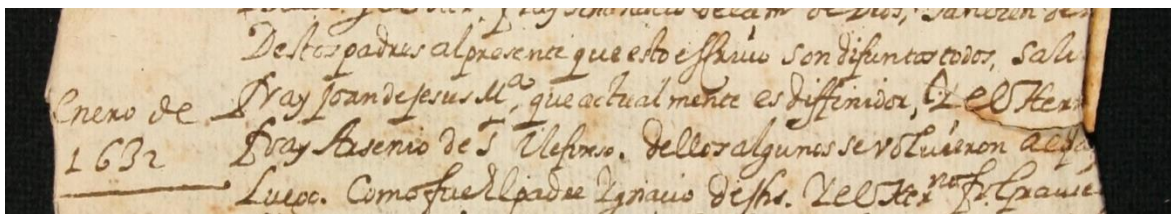 Destos padres al presente que esto escriuo son difuntos todos, salu
Enero de
1632
Fray Joan de Jesus Mª, que actual mente es diffinidor, Y el Her
Fray Arsenio de S Ilefonso. dellos algunos se voluieron al
Luego. Como fue El padre Ygnacio de Jhs. Y el Herno fr.